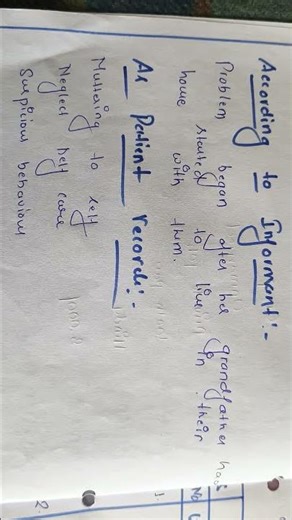 According to Informant:-
Problem began after her grandfather had
started to live in their
house with them.
As Patient record:-
Muttering to self
Neglect self care
Suspicious behaviour
No
1.
2.